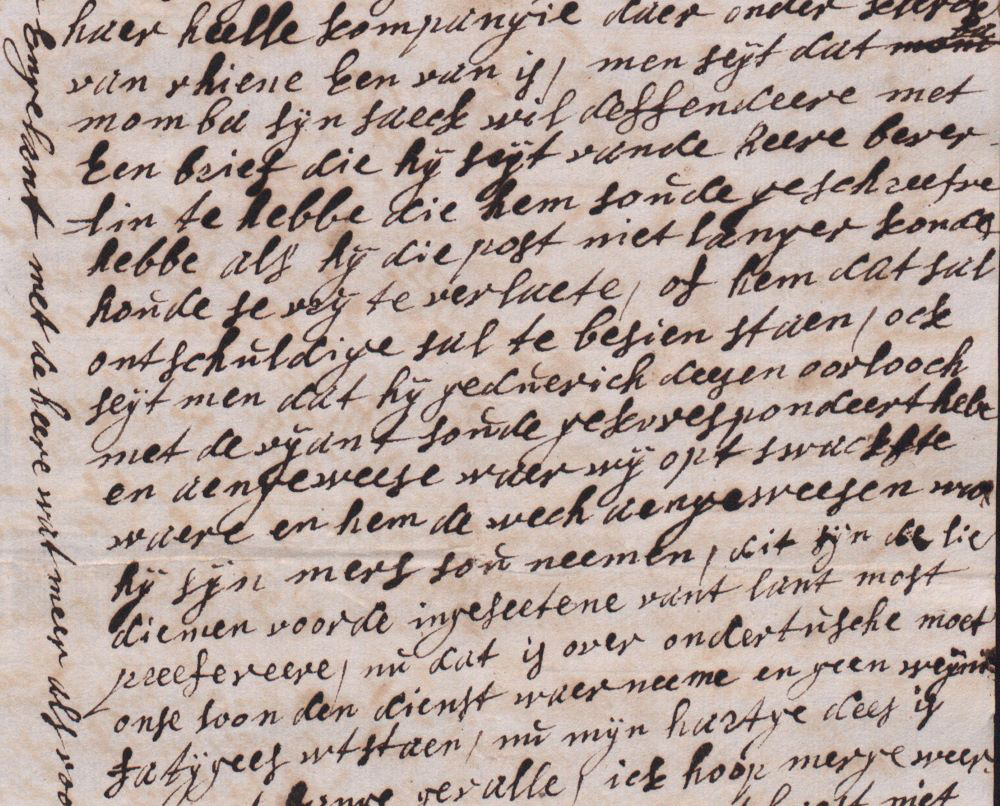 haer heelle kompangie daer onder
van rhiene Een van is / men seÿt dat
momba sÿn saeck wil deffendeere met
Een brief die hÿ seÿt vande heere bever-
lin te hebbe die hem soude geschreefve
hebbe als hÿ die post niet langer konde
houde se vrÿ te verlaete / of hem dat sal
ontschuldige sal te besien staen / ock
seÿt men dat hÿ geduerich deesen oorlooch
met de vÿant soude gekorrespondeert hebe
en aengeweese waer wÿ opt swackste
waere en hem de wech aengeweesen
hÿ sÿn mers sou neemen / dit sÿn de lie
diemen voorde ingeseetene vant lant most
preefereere / nu dat is over ondertusche moet
onse soon den dienst waerneeme en geen weÿnich
fatÿgees wtstaen / nu mÿn hartge dees is
geralle / ick hoop merge weer
niet
met de heere wat meer als